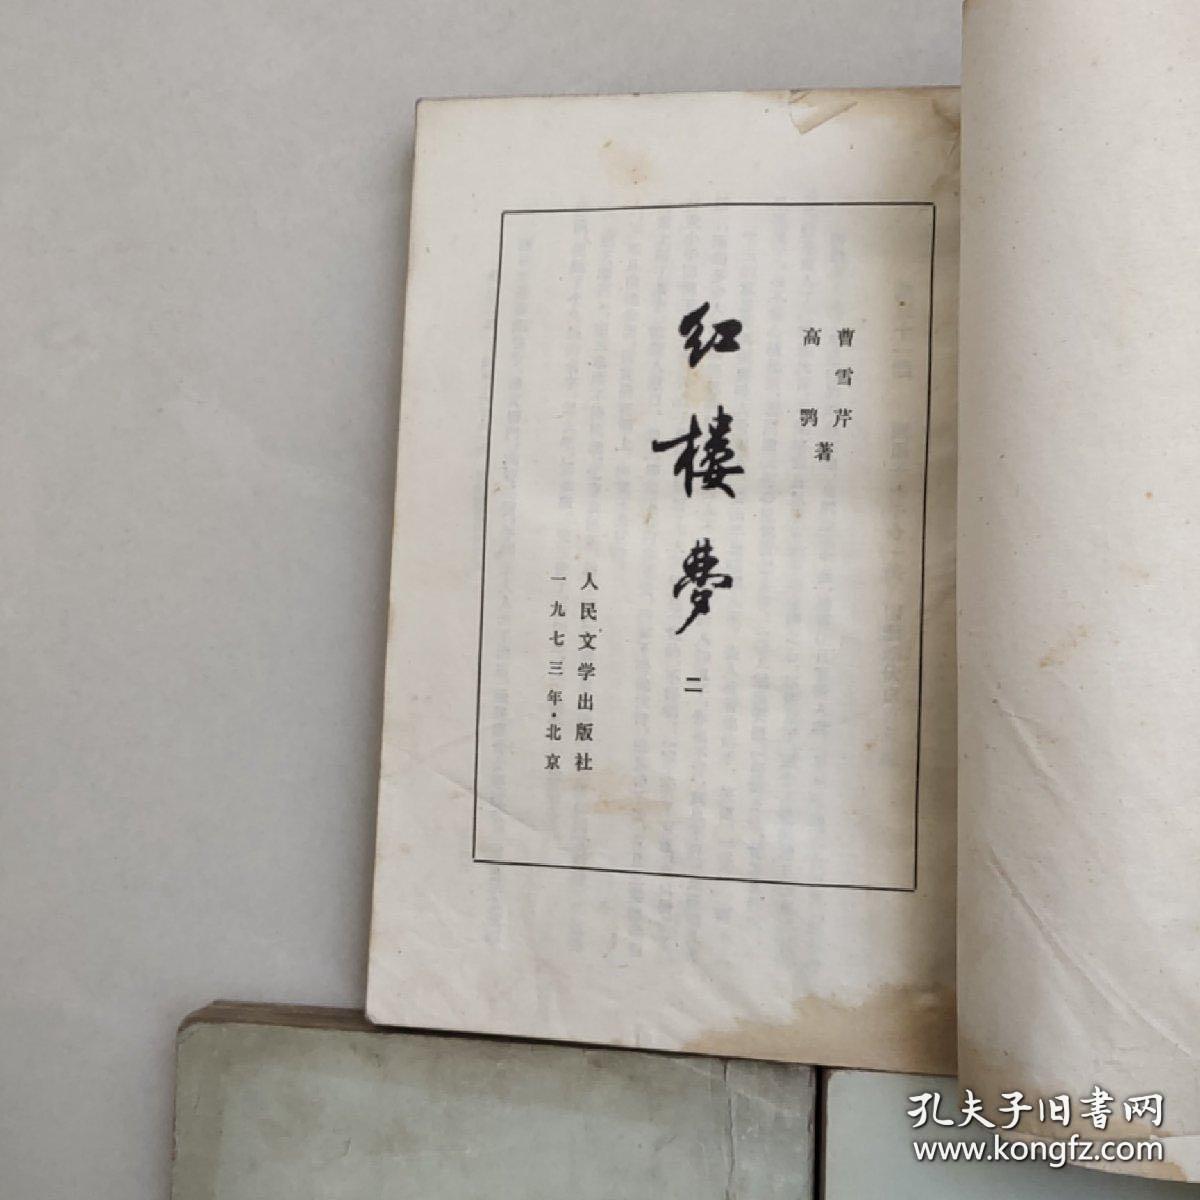 曹雪芹
高鹗
著
红楼梦
二
人民文学出版社
一九七三年·北京
孔夫子旧书网
www.kongfz.com